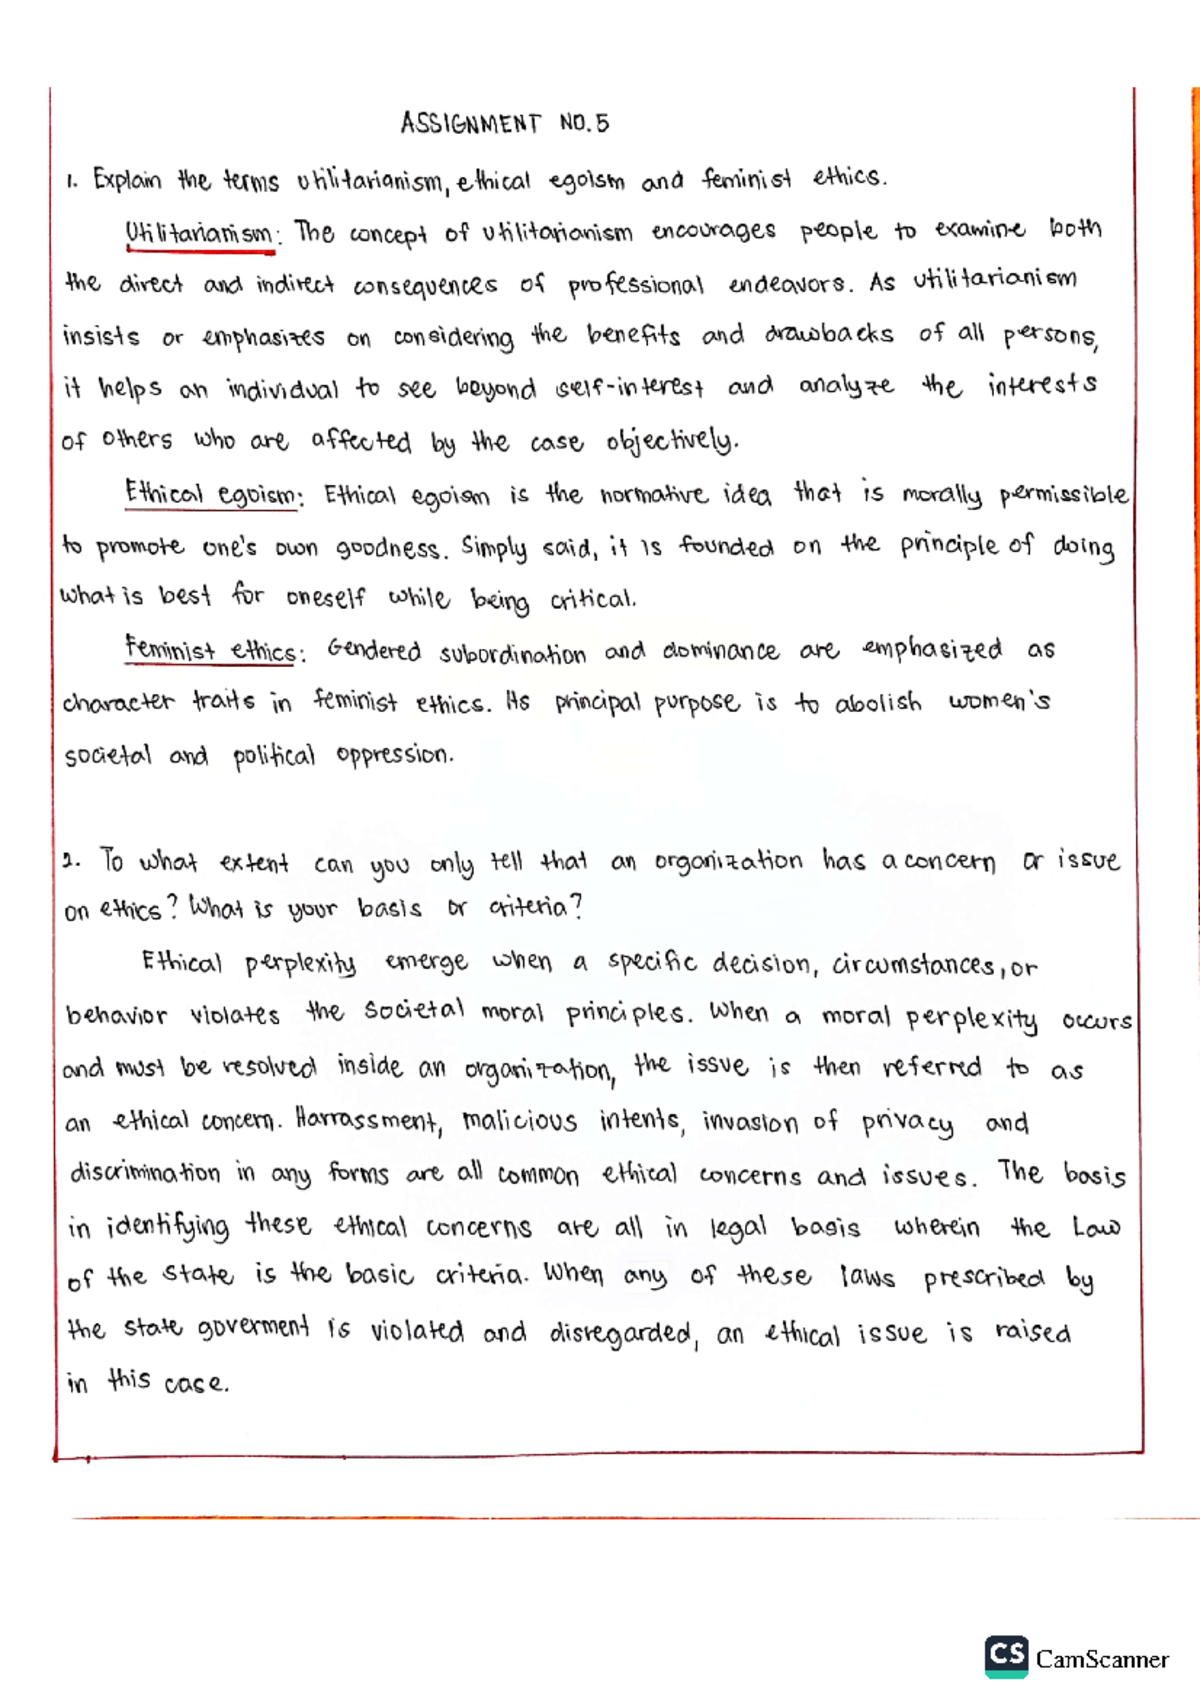 ASSIGNMENT NO. 5
1. Explain the terms utilitarianism, ethical egoism and feminist ethics.
Utilitarianism: The concept of utilitarianism encourages people to examine both
the direct and indirect consequences of professional endeavors. As utilitarianism
insists or emphasizes on considering the benefits and drawbacks of all persons,
it helps an individual to see beyond self-interest and analyze the interests
of others who are affected by the case objectively.
Ethical egoism: Ethical egoism is the normative idea that is morally permissible
to promote one's own goodness. Simply said, it is founded on the principle of doing
what is best for oneself while being critical.
Feminist ethics: Gendered subordination and dominance are emphasized as
character traits in feminist ethics. Its principal purpose is to abolish women's
societal and political oppression.
2. To what extent can you only tell that an organization has a concern or issue
on ethics? What is your basis or criteria?
Ethical perplexity emerge when a specific decision, circumstances, or
behavior violates the societal moral principles. When a moral perplexity occurs
and must be resolved inside an organization, the issue is then referred to as
an ethical concern. Harrassment, malicious intents, invasion of privacy and
discrimination in any forms are all common ethical concerns and issues. The basis
in identifying these ethical concerns are all in legal basis wherein the Law
of the state is the basic criteria. When any of these laws prescribed by
the state goverment is violated and disregarded, an ethical issue is raised
in this case.
CS CamScanner